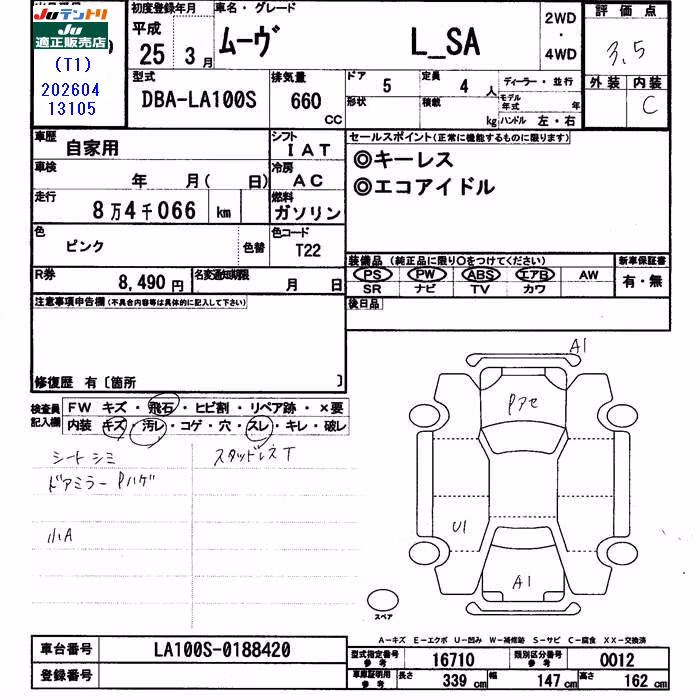 Juテントリ
Ju
適正販売店
(T1)
202604
13105
初度登録年月
平成
25 3月
車名・グレード
ムーヴ L_SA
2WD
・
4WD
評価点
3.5
外装 内装
C
型式
DBA-LA100S
排気量
660
CC
ドア
5
定員
4 人
形状
積載
kg
ディーラー・並行
モデル年式 年
ハンドル 左・右
車歴
自家用
シフト
IAT
車検
年 月( 日)
冷房
AC
走行
8万4千066 km
燃料
ガソリン
色
ピンク
色替
色コード
T22
R券
8,490円
名変通知期限
月 日
セールスポイント(正常に機能するものに限ります)
◎キーレス
◎エコアイドル
装備品(純正品に限り○をつけてください)
PS PW ABS エアB AW
SR ナビ TV カワ
新車保証書
有・無
後日品
注意事項申告欄(不具合内容等は具体的に記入して下さい)
修復歴 有〔箇所 〕
検査員記入欄
FW キズ・飛石・ヒビ割・リペア跡・×要
内装 キズ・汚レ・コゲ・穴・スレ・キレ・破レ
シートシミ
スタッドレスT
ドアミラーPハゲ
小A
A1
Pアセ
U1
A1
スペア
A-キズ E-エクボ U-凹み W-補修跡 S-サビ C-腐食 XX-交換済
車台番号
LA100S-0188420
登録番号
型式指定番号
参考
16710
類別区分番号
参考
0012
車庫証明用
参考
長さ 339cm
幅 147cm
高さ 162cm